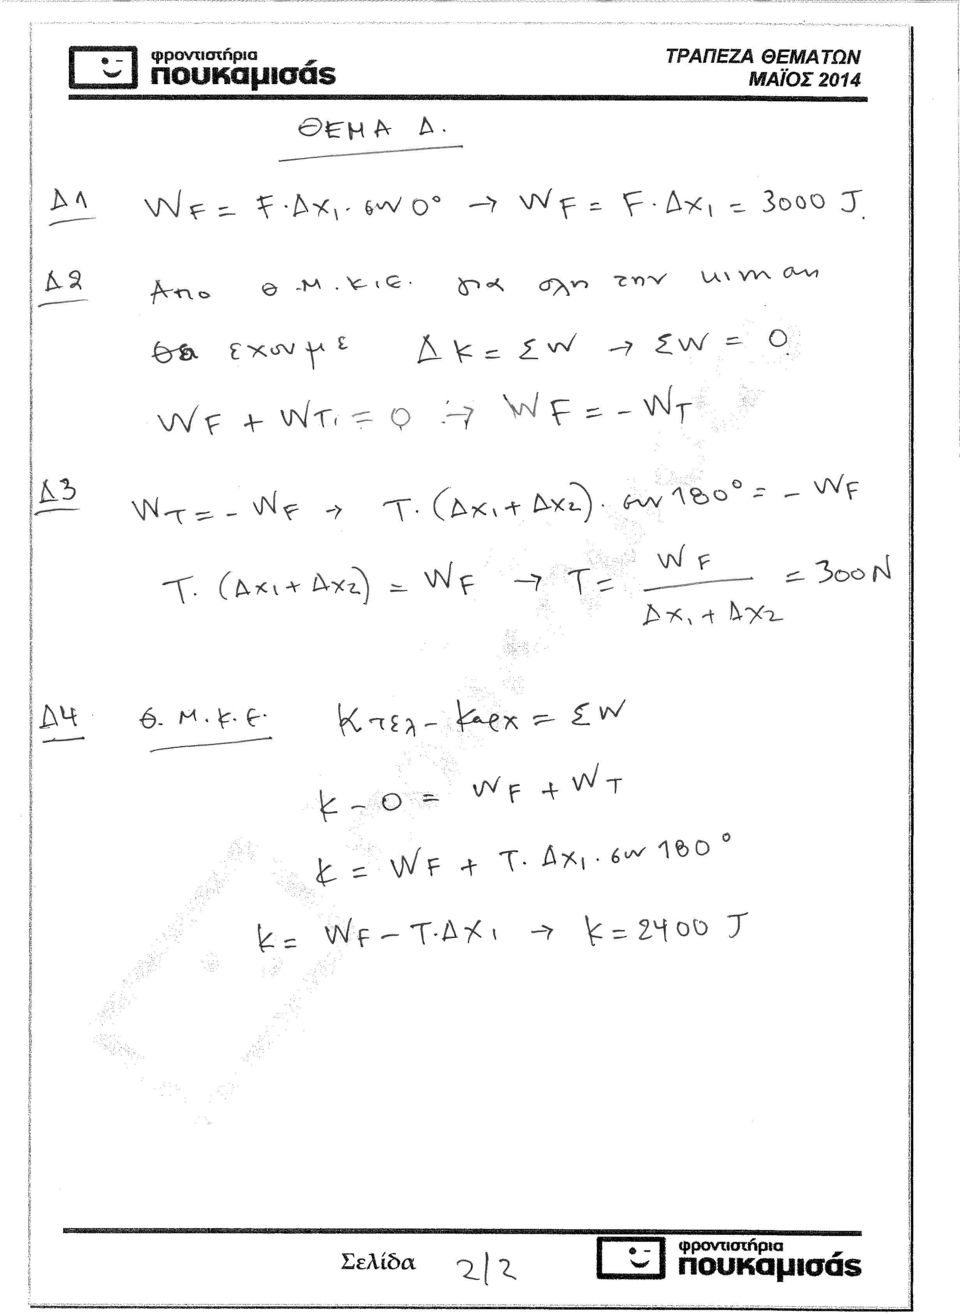 φροντιστήρια
πουκαμισάς
ΤΡΑΠΕΖΑ ΘΕΜΑΤΩΝ
ΜΑΪΟΣ 2014
ΘΕΜΑ Δ.
Δ1 W_F = F·Δx₁·συν0° → W_F = F·Δx₁ = 3000 J.
Δ2 Απο Θ.Μ.Κ.Ε. για ολη την κινηση
θα εχουμε ΔΚ = ΣW → ΣW = 0
W_F + W_T = 0 → W_F = -W_T
Δ3 W_T = -W_F → T·(Δx₁+Δx₂)·συν180° = -W_F
T·(Δx₁+Δx₂) = W_F → T = W_F / (Δx₁+Δx₂) = 300N
Δ4 Θ.Μ.Κ.Ε. Κτελ - Καρχ = ΣW
K - 0 = W_F + W_T
K = W_F + T·Δx₁·συν180°
K = W_F - T·Δx₁ → K = 2400 J
Σελίδα 2/2
φροντιστήρια
πουκαμισάς